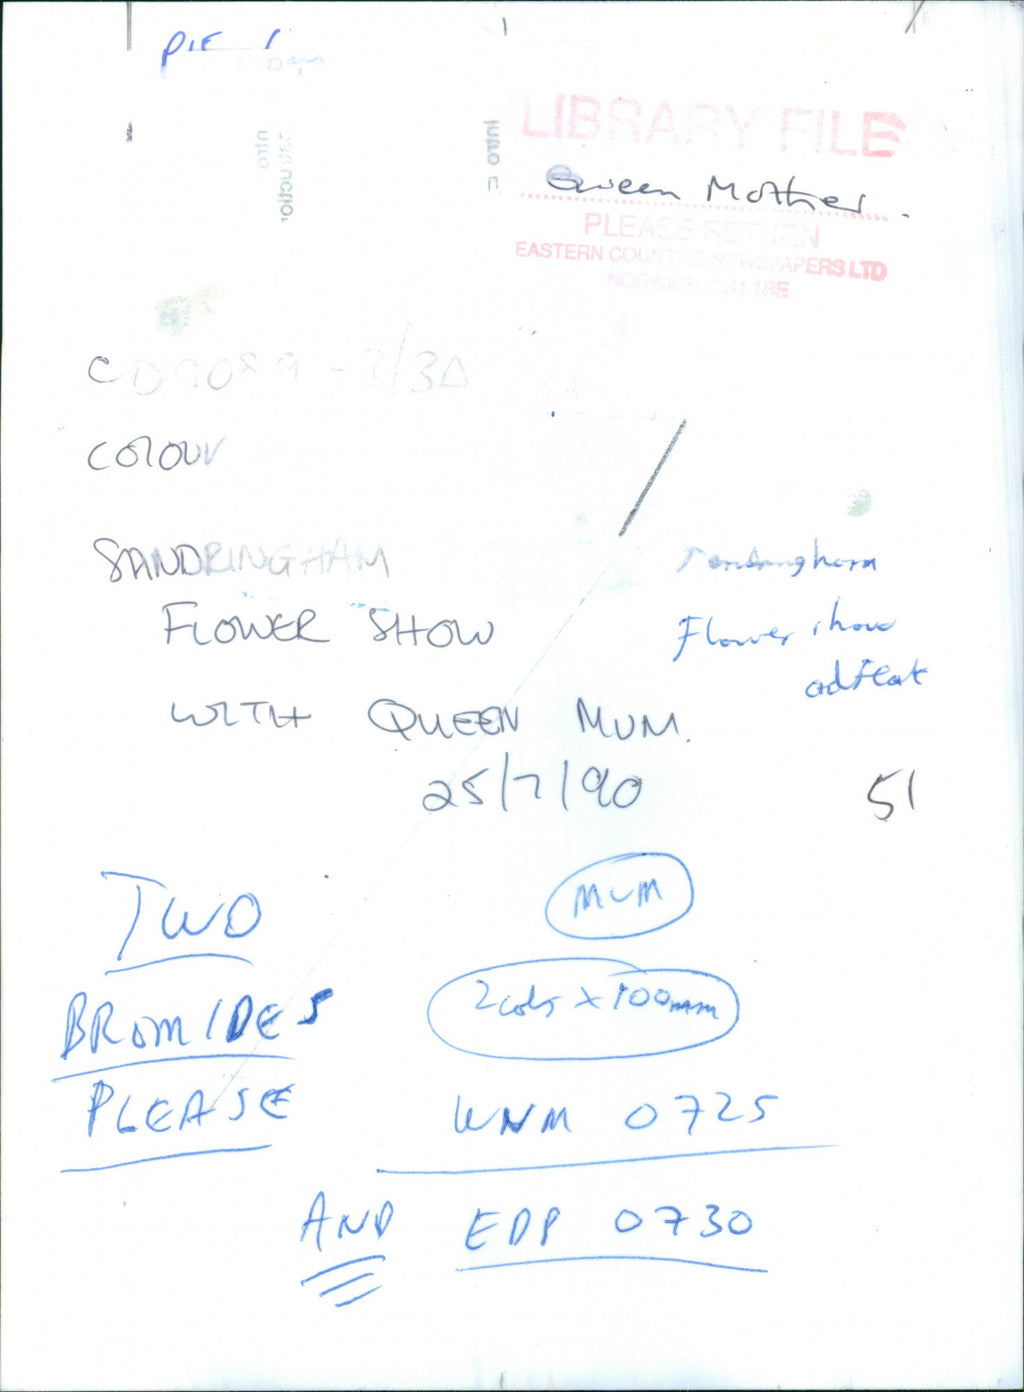 PIC 1
LIBRARY FILE
Queen Mother.
PLEASE RETURN
EASTERN COUNTIES NEWSPAPERS LTD
NORWICH NR1 1RE
CD7089-3/3A
COLOUR
SANDRINGHAM
FLOWER SHOW
WITH QUEEN MUM.
25/7/90
Flower show
51
TWO
BROMIDES
PLEASE
MUM
2 cols x 100mm
WNM 0725
AND EDP 0730